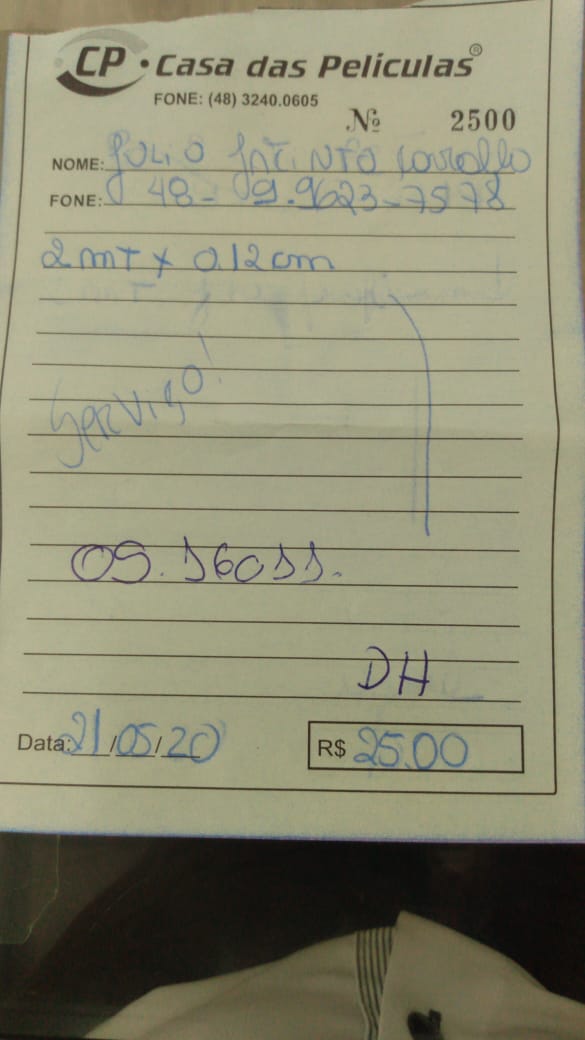 CP · Casa das Películas®
FONE: (48) 3240.0605
Nº 2500
NOME: JULIO
FONE: 48 - 9.9623-7578
2 mT x 0.12 cm
Serviço!
OS. 16011.
DH
Data: 21/05/20 R$ 25.00